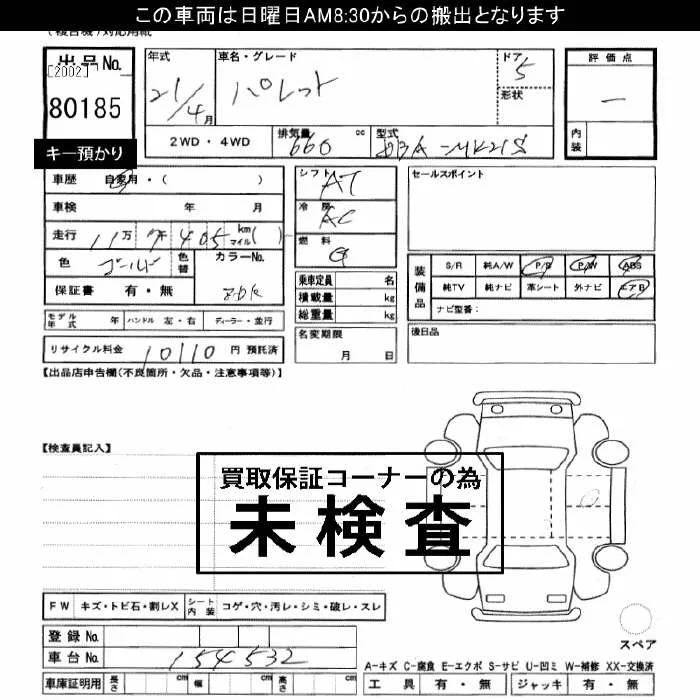 この車両は日曜日AM8:30からの搬出となります
(複合機)対応用紙
出品No.
[2002]
80185
キー預かり
年式 車名・グレード ドア 5
21/4月 パレット 形状
評価点
一
内装
2WD・4WD 排気量 660 cc 型式 DBA-MK21S
車歴 自家用・( )
車検 年 月
走行 11万 7千 405 km マイル( )
色 ゴールド 色替 カラーNo.
保証書 有・無
モデル年式 年 ハンドル 左・右 ディーラー・並行
リサイクル料金 10110 円 預託済
シフト AT
冷房 AC
燃料 G
乗車定員 名
積載量 kg
総重量 kg
名変期限
月 日
セールスポイント
装備品 S/R 純A/W P/S P/W ABS
純TV 純ナビ 革シート 外ナビ エアB
ナビ型番:
後日品
【出品店申告欄(不良箇所・欠品・注意事項等)】
【検査員記入】
買取保証コーナーの為
未検査
FW キズ・トビ石・割レX シート内装 コゲ・穴・汚レ・シミ・破レ・スレ
登録 No.
車台 No. 154532
車庫証明用 長さ cm 幅 cm 高さ cm
スペア
A-キズ C-腐食 E-エクボ S-サビ U-凹ミ W-補修 XX-交換済
工具 有・無 ジャッキ 有・無